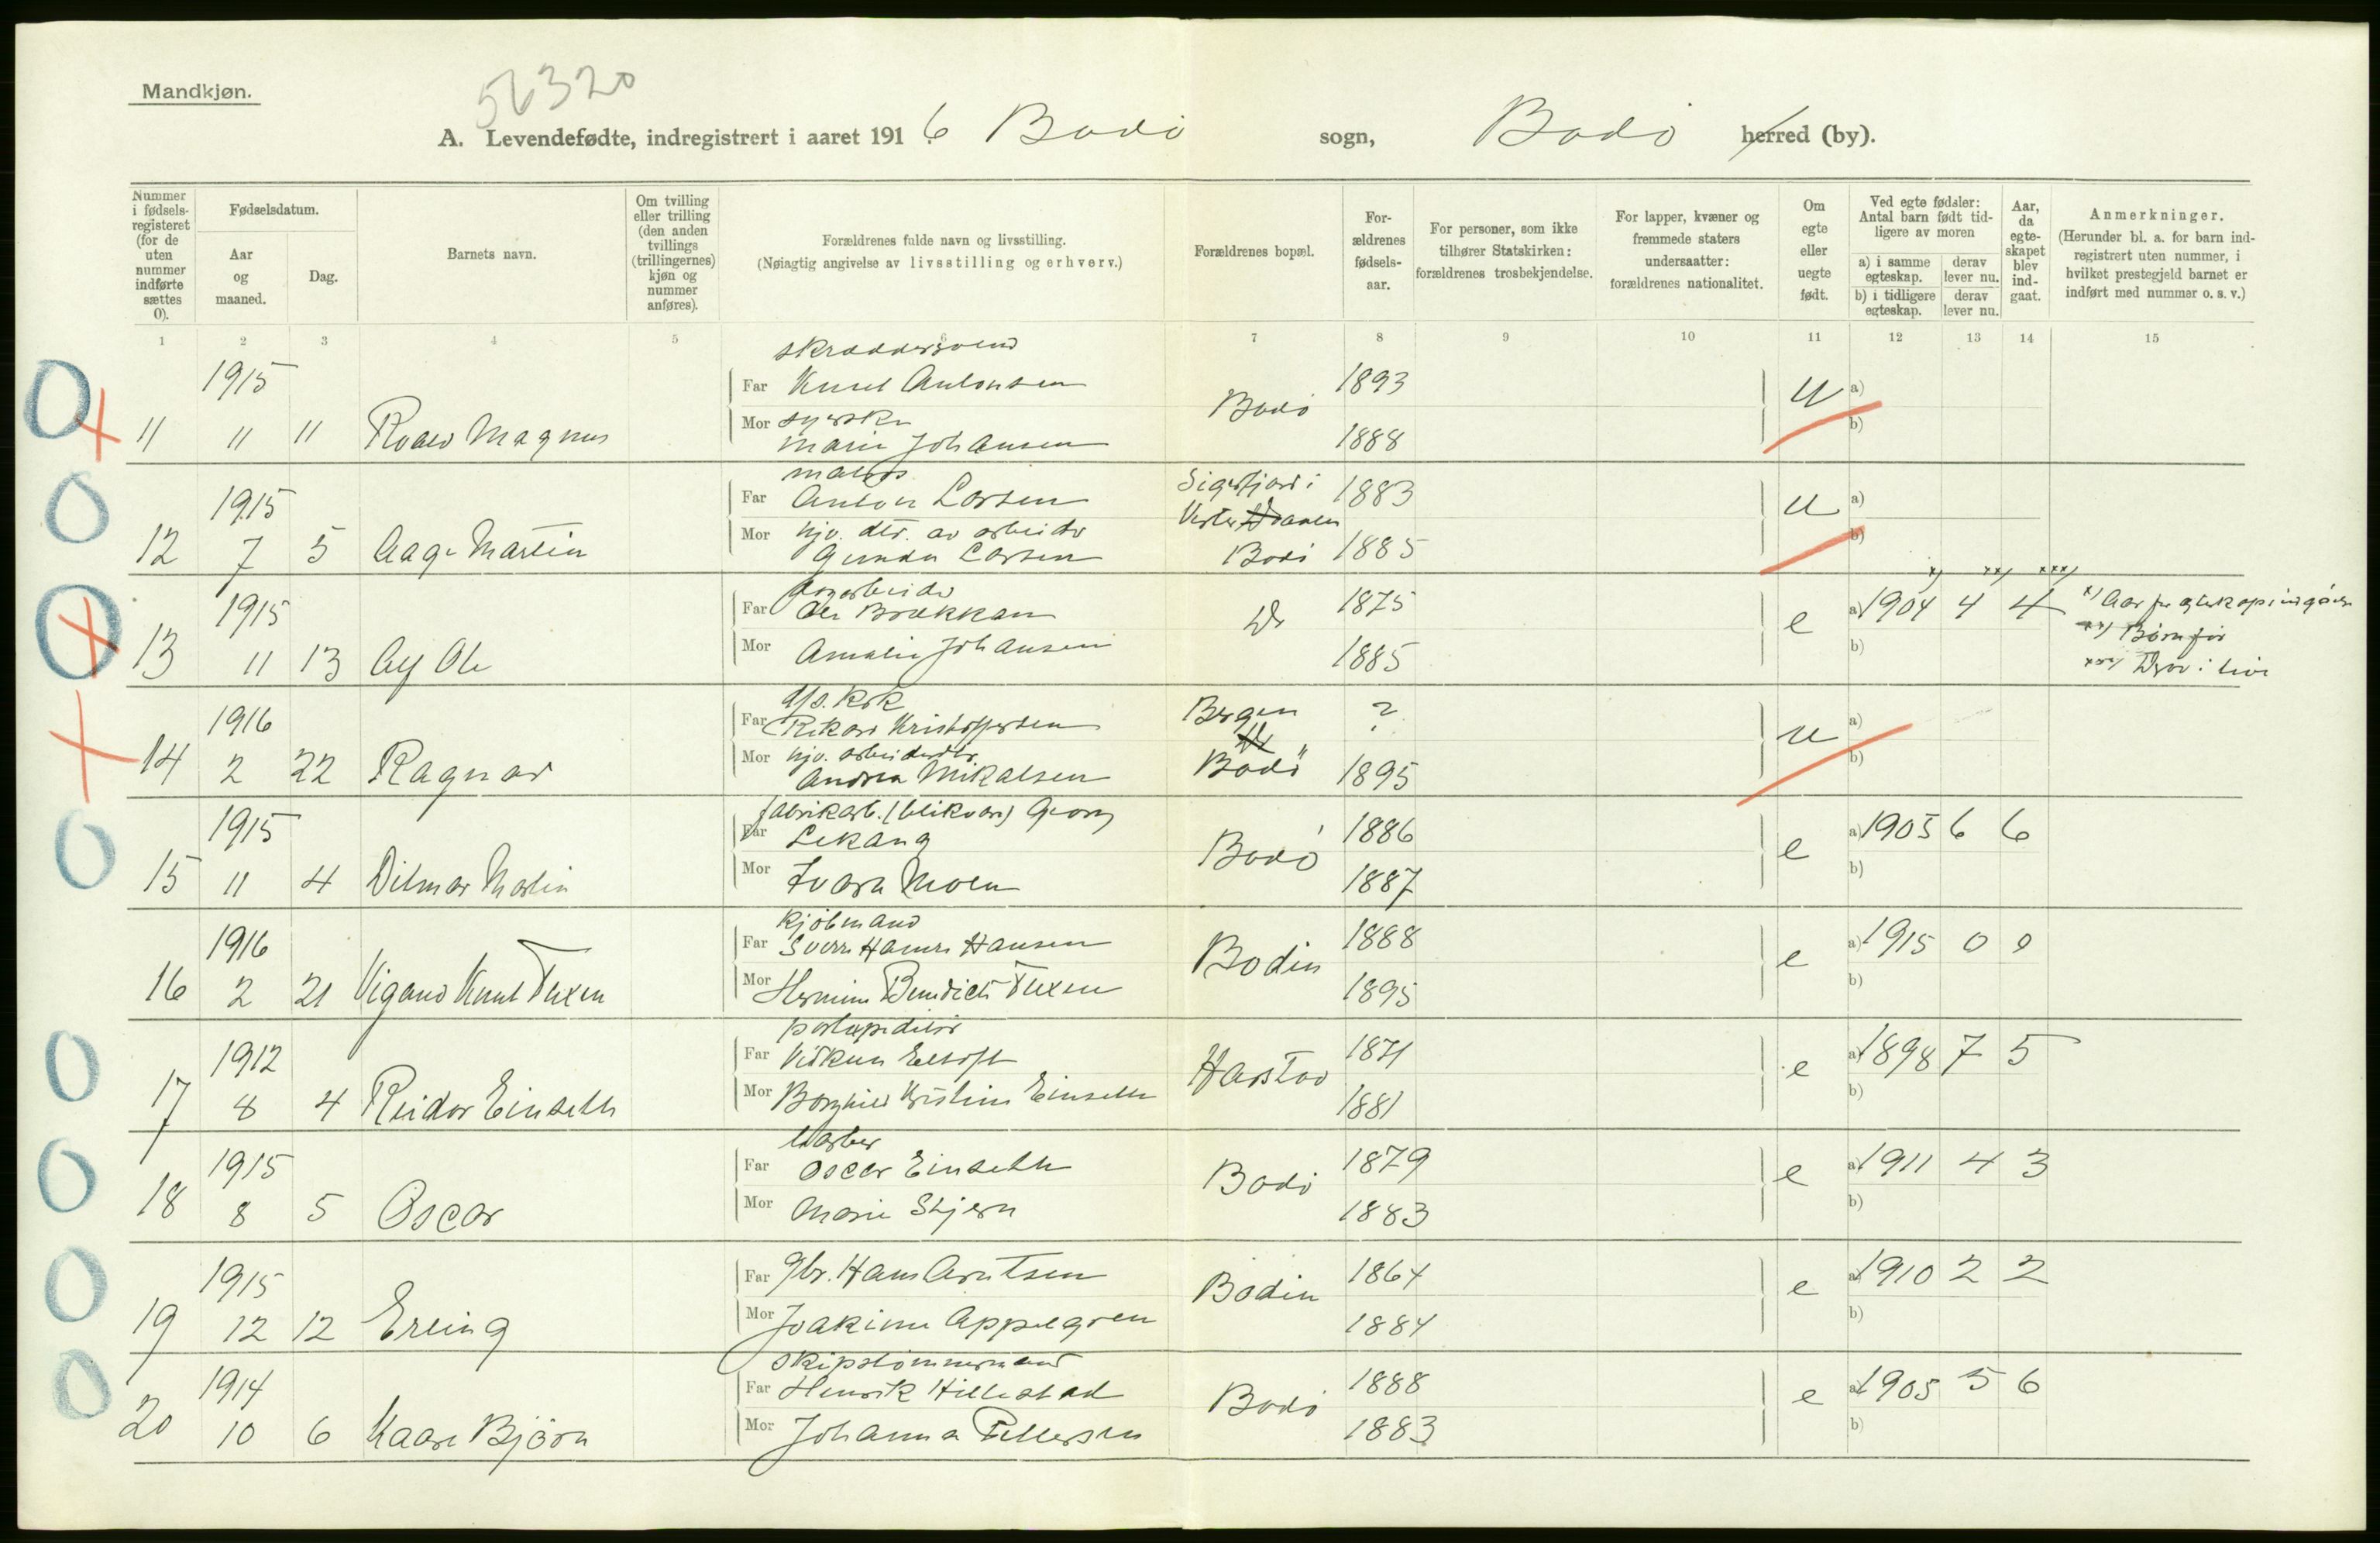 Mandkjøn.
56320
A. Levendefødte, indregistrert i aaret 1916. Bodö sogn, Bodö herred (by).
Nummer i fødsels-registeret (for de uten nummer indførte sættes 0).
Fødselsdatum.
Aar og maaned.
Dag.
Barnets navn.
Om tvilling eller trilling (den anden tvillings (trillingernes) kjøn og nummer anføres).
Forældrenes fulde navn og livsstilling.
(Nøiagtig angivelse av livsstilling og erhverv.)
Forældrenes bopæl.
For-ældrenes fødsels-aar.
For personer, som ikke tilhører Statskirken: forældrenes trosbekjendelse.
For lapper, kvæner og fremmede staters undersaatter: forældrenes nationalitet.
Om egte eller uegte født.
Ved egte fødsler: Antal barn født tid-ligere av moren
a) i samme egteskap. derav lever nu.
b) i tidligere egteskap. derav lever nu.
Aar, da egte-skapet blev ind-gaat.
Anmerkninger.
(Herunder bl. a. for barn ind-registrert uten nummer, i hvilket prestegjeld barnet er indført med nummer o. s. v.)
1 2 3 4 5 6 7 8 9 10 11 12 13 14 15
skræddersvend
1915 Far Knut Antonsen Bodö 1893 u a)
11 11 11 Roald Magnus Mor syerske
Marie Johansen 1888 b)
matros
1915 Far Anton Larsen Sigerfjord i 1883 u a)
12 7 5 Aage Martin Mor hjv. dtr. av arbeider
Gunda Larsen Bodö 1885 b)
x) xx) xxx)
1915 Far Ole Brækkan Do 1875 e a) 1904 4 4
13 11 13 Alf Ole Mor Amalie Johansen 1885 b)
xx) Børn før
xxx) Derav i live
d/s. kok
1916 Far Rikard Kristoffersen Bergen ? u a)
14 2 22 Ragnar Mor hjv. arbeiderdtr.
Andrea Mikalsen Bodö 1895 b)
fabrikarb. (blikvare) Georg
1915 Far Lekang Bodö 1886 e a) 1905 6 6
15 11 4 Dilmar Martin Mor Ivara Moen 1887 b)
kjöbmand
1916 Far Sverre Hansen Bodin 1888 e a) 1915 0 0
16 2 21 Vigand Knut Tuxen Mor Hermine Benedicte Tuxen 1895 b)
postexpeditør
1912 Far Vidkun Eltoft Harstad 1871 e a) 1898 7 5
17 8 4 Reidar Einseth Mor Borghild Kristine Einseth 1881 b)
barber
1915 Far Oscar Einseth Bodö 1879 e a) 1911 4 3
18 8 5 Oscar Mor Marie Stjern 1883 b)
1915 Far gbr. Hans Arntsen Bodin 1864 e a) 1910 2 2
19 12 12 Erling Mor Joakime Appelgren 1884 b)
skipstömmermand
1914 Far Henrik Hillestad Bodö 1888 e a) 1905 5 6
20 10 6 Kaare Björn Mor Johanna Pettersen 1883 b)